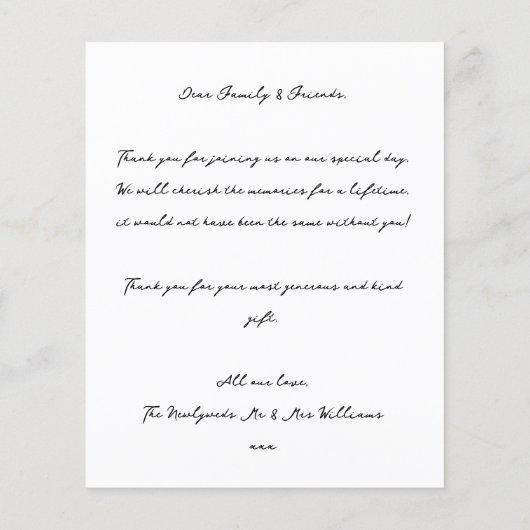 Dear Family & Friends,
Thank you for joining us on our special day,
We will cherish the memories for a lifetime,
it would not have been the same without you!
Thank you for your most generous and kind
gift.
All our love,
The Newlyweds Mr & Mrs Williams
xxx